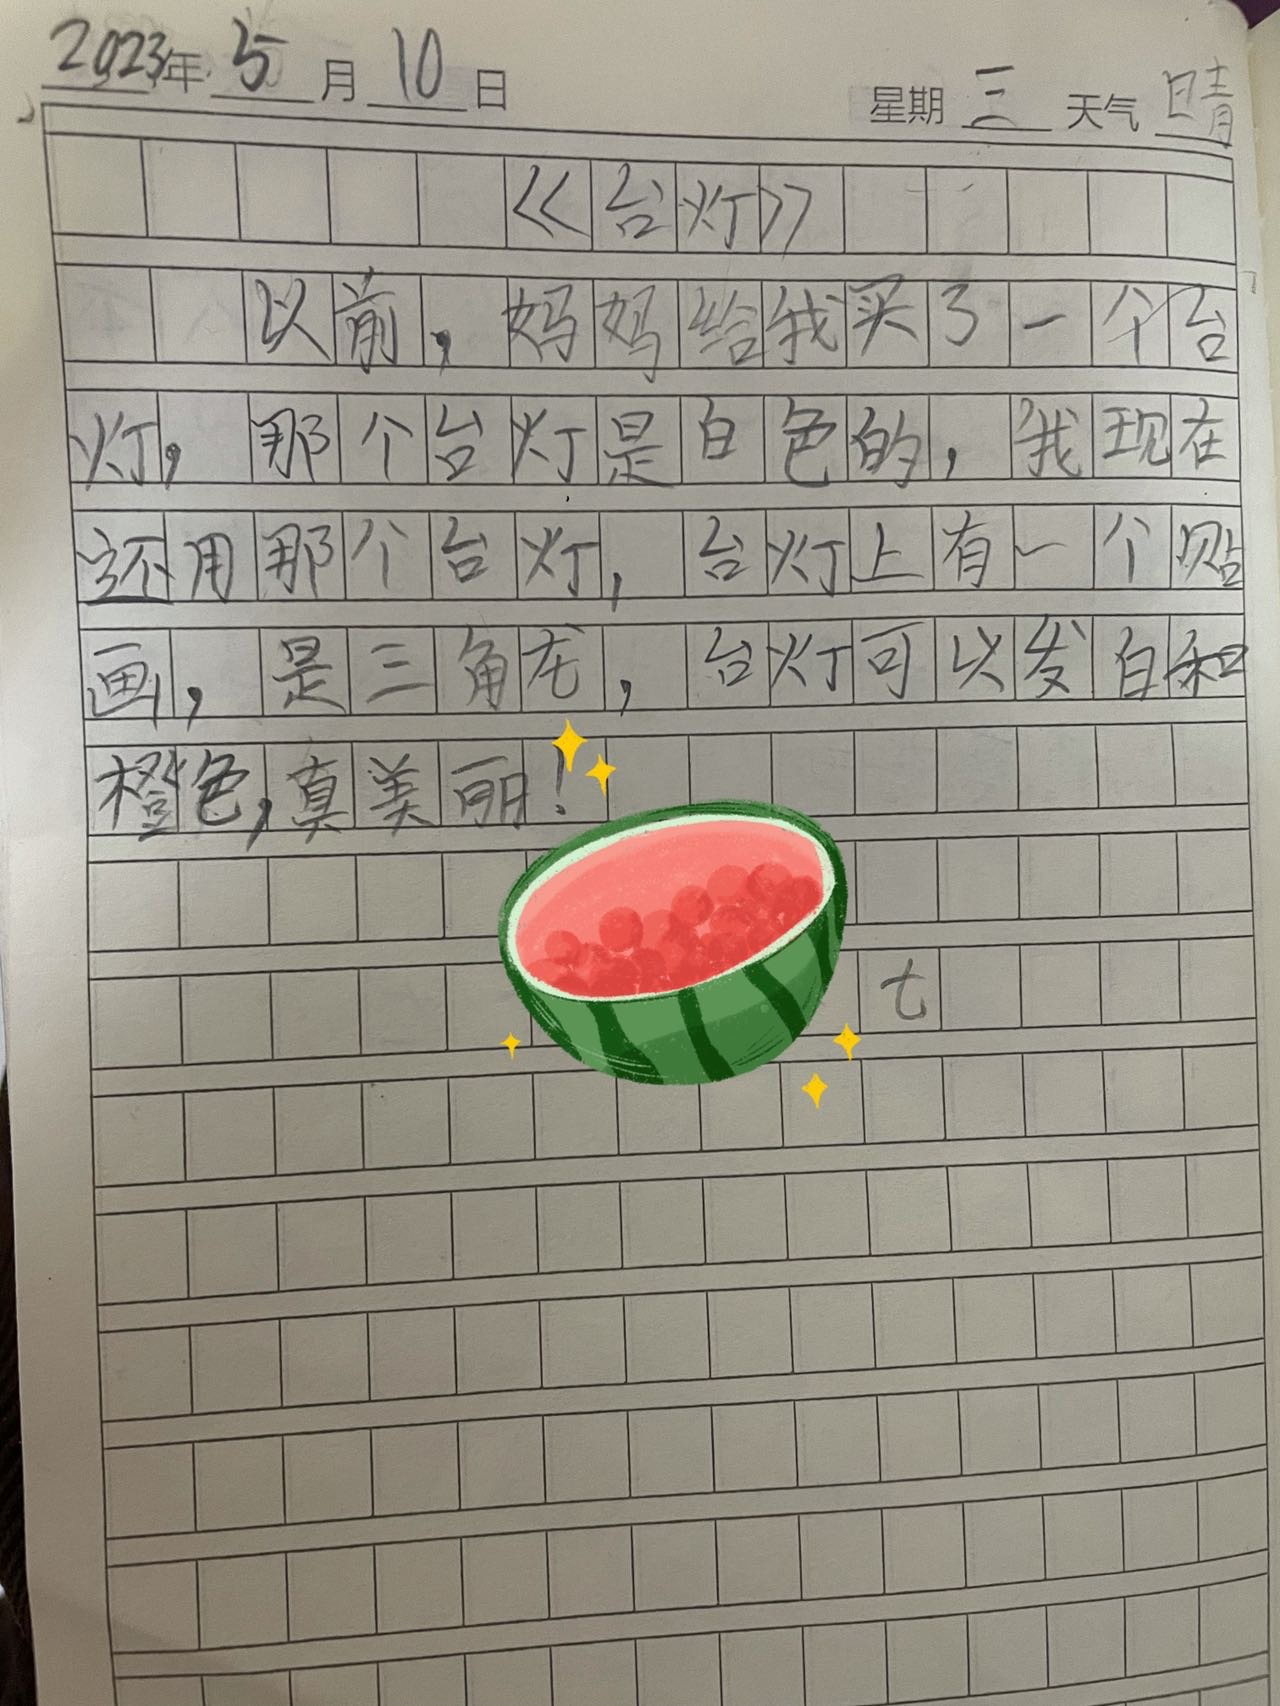 2023年 5 月 10 日 星期 三 天气 晴
《台灯》
以前，妈妈给我买了一个台
灯，那个台灯是白色的，我现在
还用那个台灯，台灯上有一个贴
画，是三角龙，台灯可以发白和
橙色，真美丽！
七